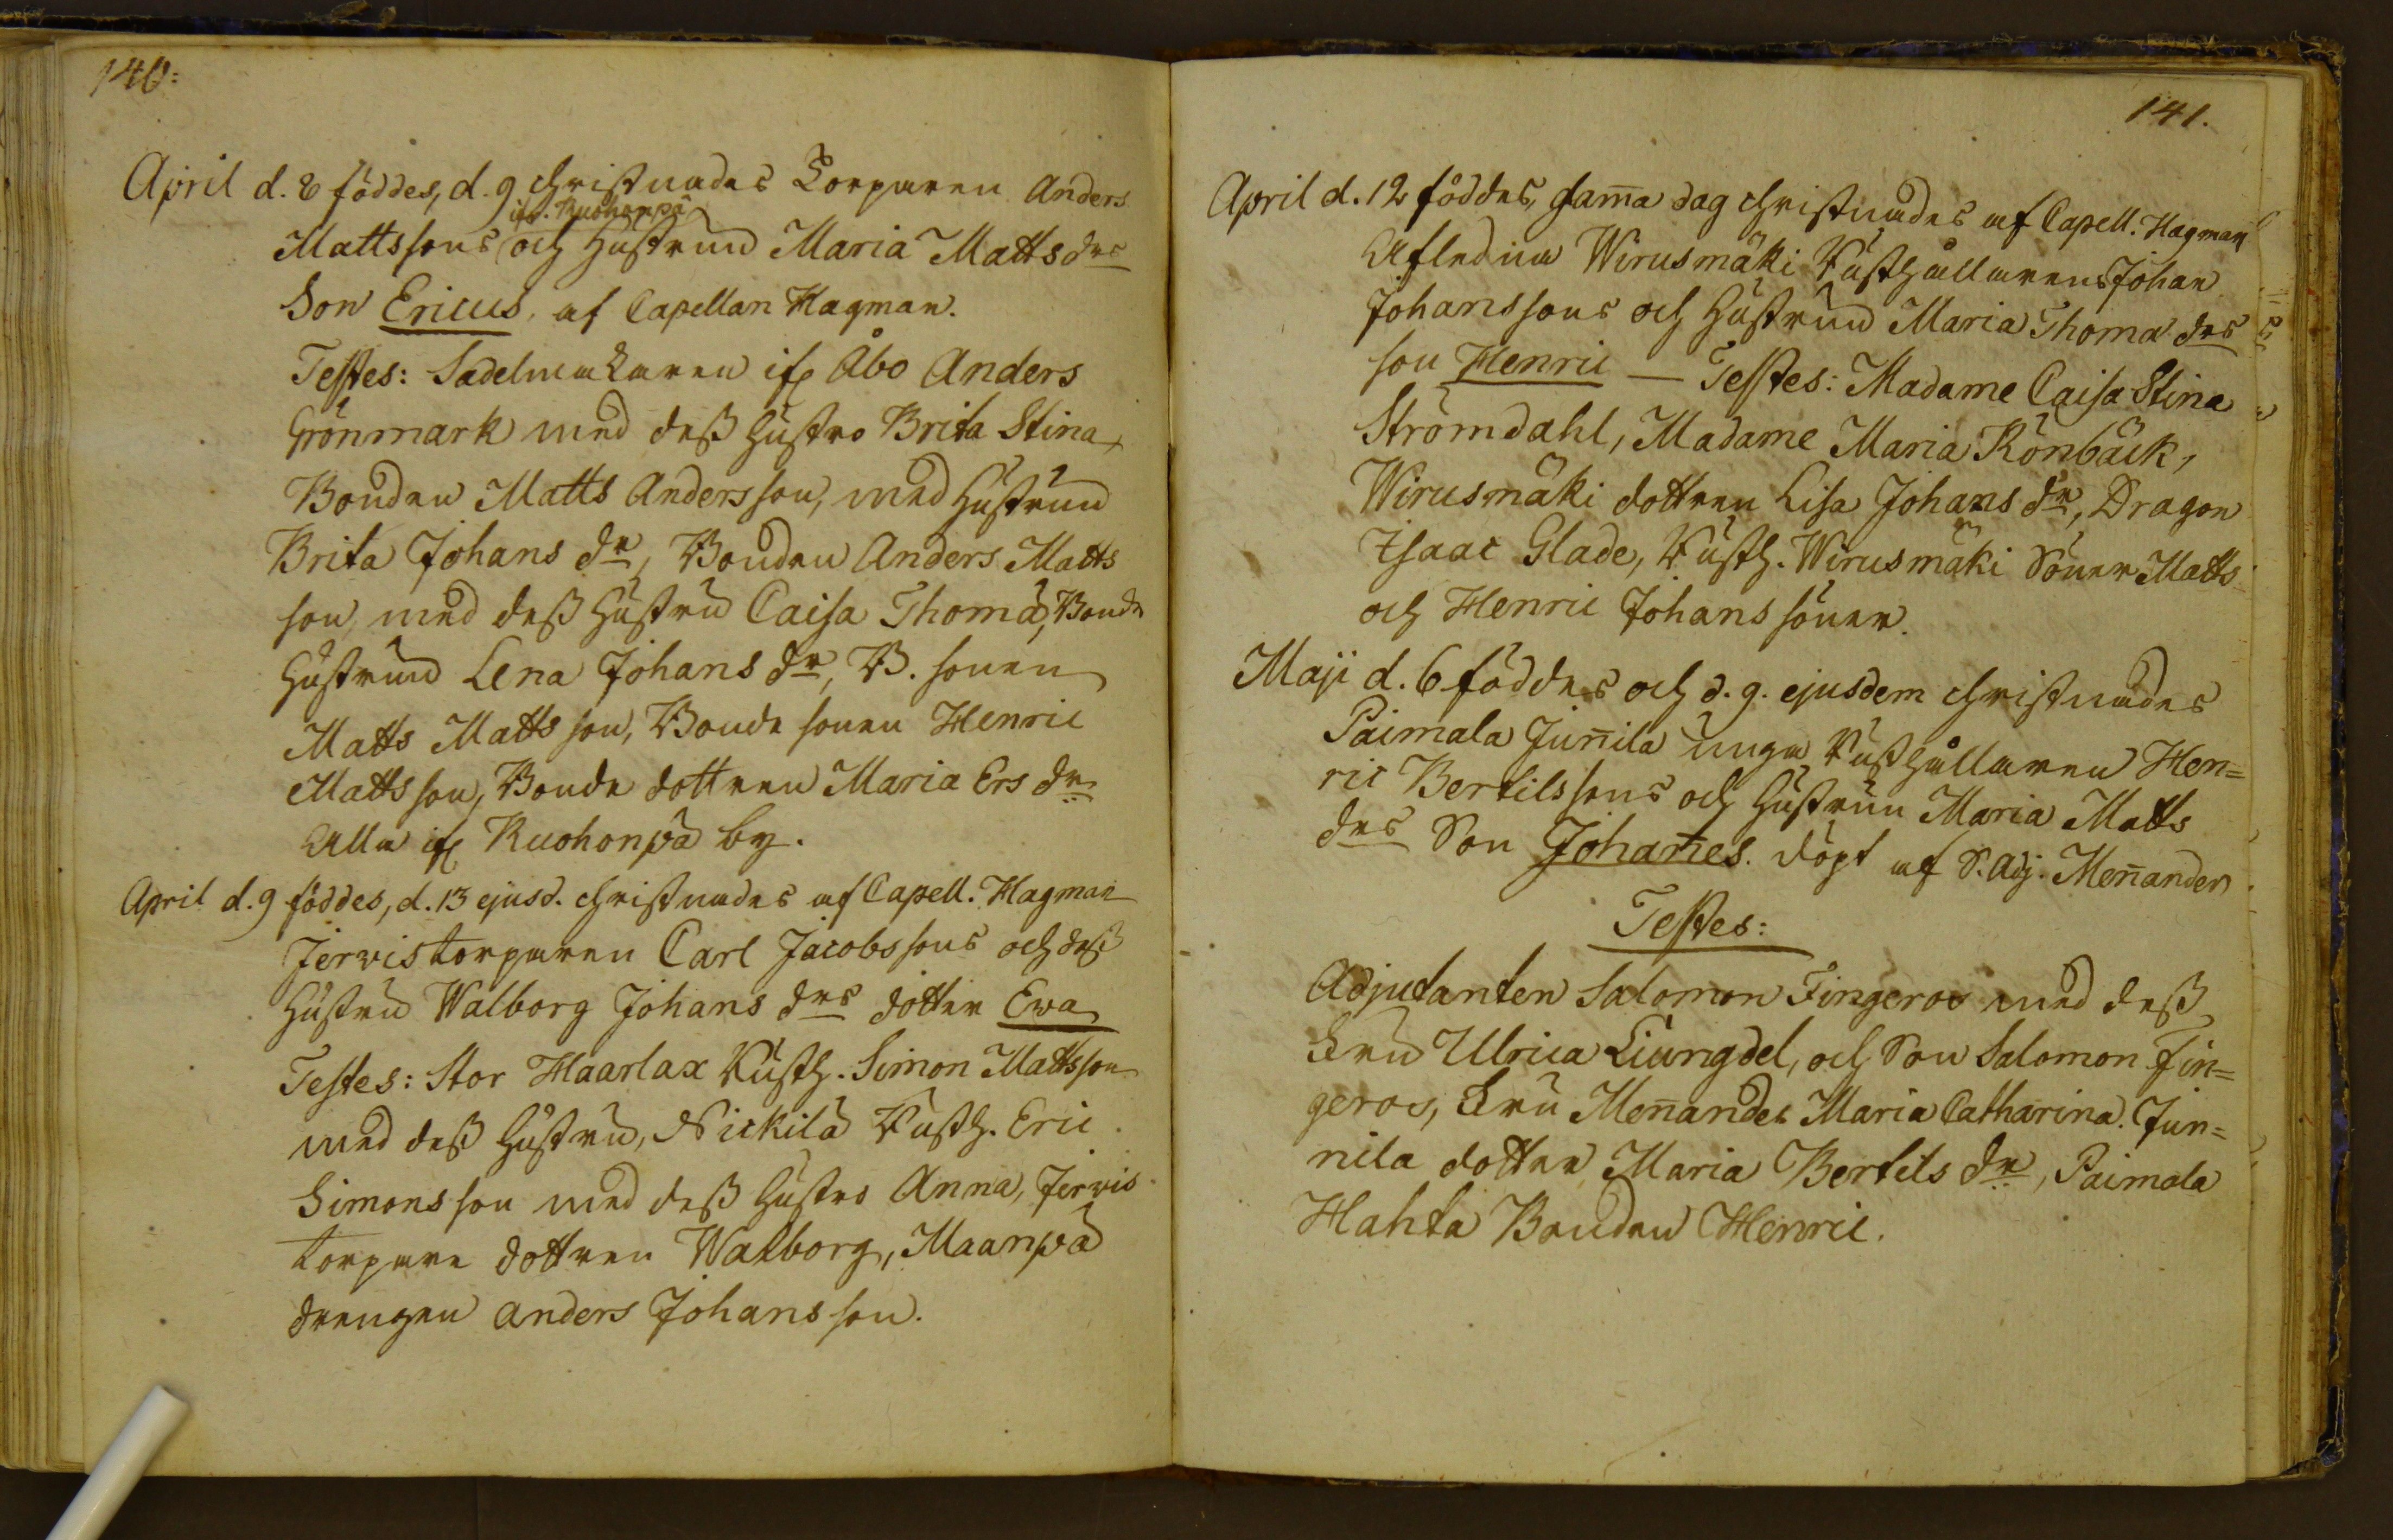 140:
April d. 8 föddes, d. 9 christnades Torparen Anders
ifr. Kuohonpä
Mattssons och Hustrun Maria Mattsdrs
Son Ericus, af Capellan Hagman.
Testes: Sadelmakaren ifr Åbo Anders
Grönmark med dess hustro Brita Stina,
Bonden Matts Andersson, med Hustrun
Brita Johans dr, Bonden Anders Matts
son, med dess hustru Caisa Thomä, Bonde
hustrun Lena Johans dr, B. sonen
Matts Mattsson, Bonde sonen Henric
Mattsson, Bonde dottren Maria Ers dr.
Alla ifr Kuohonpä by.
April d. 9 föddes, d. 13 ejusd. christnades af Capell. Hagman
Jervis torparen Carl Jacobssons och dess
hustru Walborg Johans drs dotter Ewa
Testes: Stor Haarlax Rusth. Simon Mattsson
med dess hustru, Nickilä Rusth. Eric
Simonsson med dess hustro Anna, Jervis
torpare dottren Walborg, Maanpä
drengen Anders Johansson.
141.
April d. 12 föddes, sam̄a dag christnades af Capell. Hagman
Afledna Wirusmäki Rusthållarens Johan
Johanssons och Hustrun Maria Thomä drs
son Henric — Testes: Madame Caisa Stina
Strömdahl, Madame Maria Rönbäck,
Wirusmäki dottren Lisa Johans dr, Dragon
Isaac Glade, Rusth. Wirusmäki Söner Matts
och Henric Johanssöner.
Maji d. 6 föddes och d. 9. ejusdem christnades
Paimala Jun̄ila unga Rusthållaren Hen=
ric Bertilssons och Hustrun Maria Matts
drs Son Johan̄es. döpt af S. Adj. Men̄ander
Testes:
Adjutanten Salomon Fingeroos med dess
Fru Ulrica Liungdel, och Son Salomon Fin=
geroos, Fru Men̄ander Maria Catharina. Jun=
nila dotter Maria Bertils dr, Paimala
Hahta Bonden Henric.